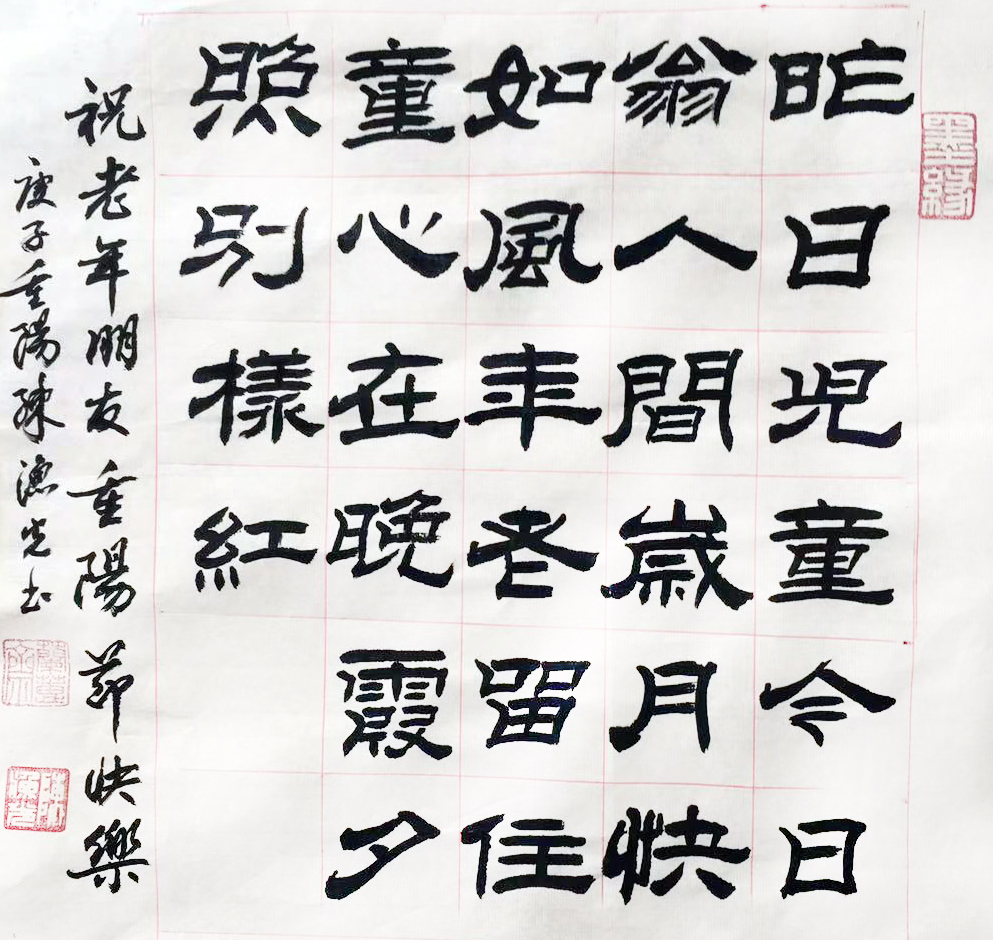 昨日児童令日
翁人間歳月快
如風年老留住
童心在晚霞夕
照别樣紅
祝老年朋友重陽節快樂
庚子重陽陳漁光书
墨缘